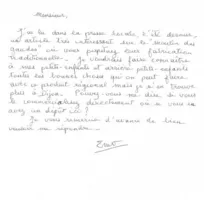 Monsieur,
J'ai lu dans la presse locale l'été dernier
un article très intéressant sur le "
" où vous
traditionnelle. Je voudrais faire connaître
à mes petits-enfants et arrière petits-enfants
toutes les bonnes choses qu'on peut faire
avec ce produit régional mais je n'en trouve
plus à Dijon. Pouvez-vous me dire si vous
le commercialisez directement où si vous
avez un dépôt ici ?
Je vous remercie d'avance de bien
vouloir me répondre.